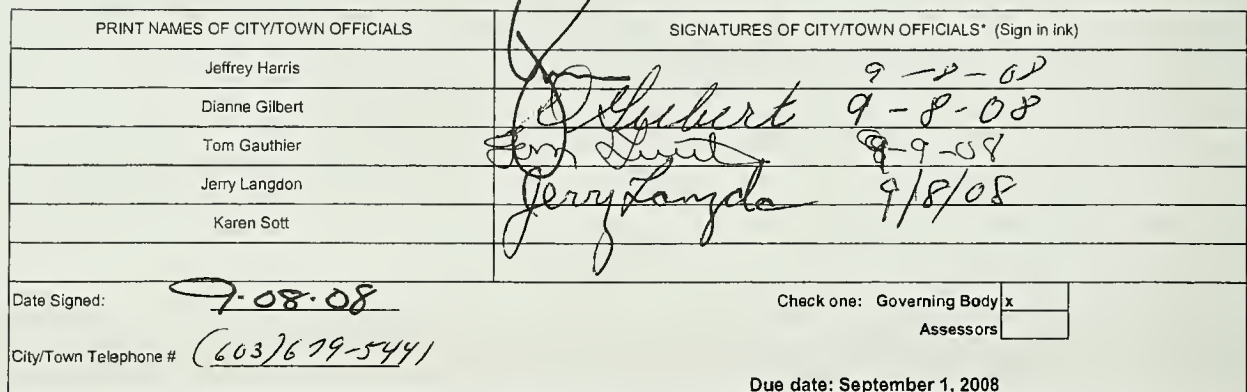 PRINT NAMES OF CITY/TOWN OFFICIALS SIGNATURES OF CITY/TOWN OFFICIALS* (Sign in ink)
Jeffrey Harris 9-8-08
Dianne Gilbert D Gilbert 9-8-08
Tom Gauthier Tom 9-9-08
Jerry Langdon Jerry Langdo 9/8/08
Karen Sott
Date Signed: 9-08-08 Check one: Governing Body x
Assessors
City/Town Telephone # (603) 679-5441
Due date: September 1, 2008